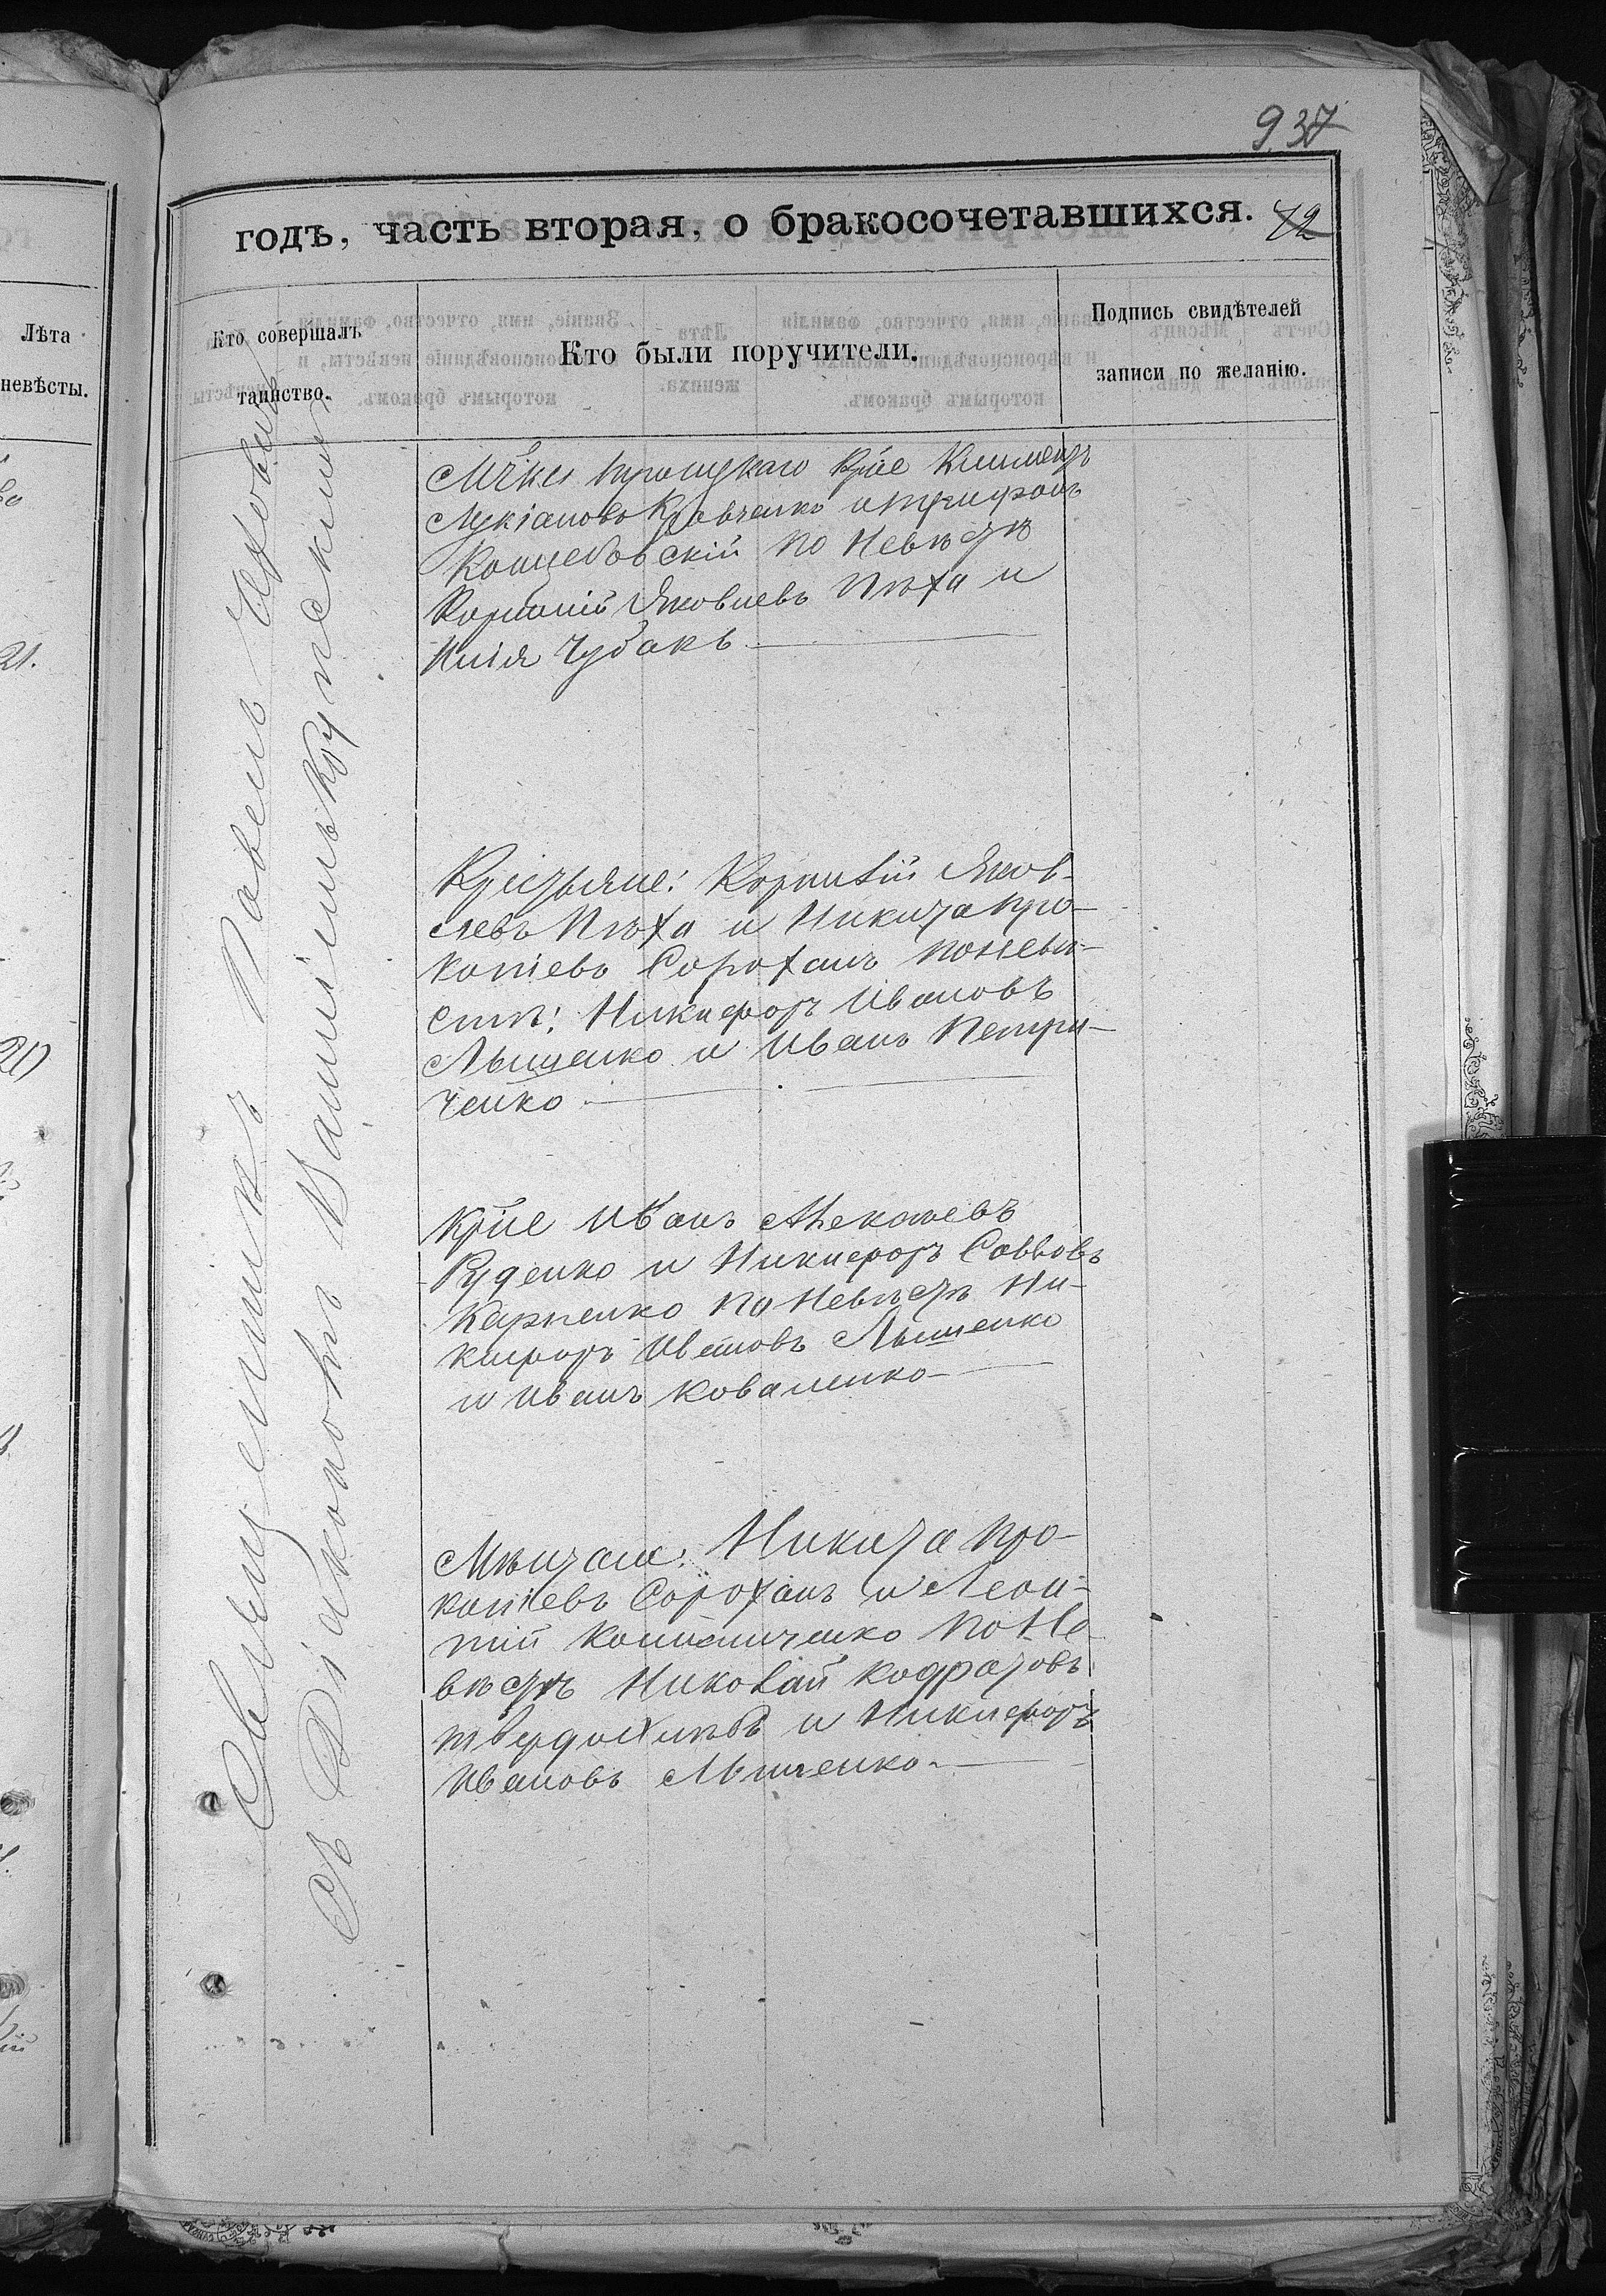 937
годъ, часть вторая, о бракосочетавшихся. 42
Лѣта
невѣсты.
Кто совершалъ
таинство.
Кто были поручители.
Подпись свидѣтелей
записи по желанію.
21.
20
Священникъ Павелъ
съ Діакономъ
М҃ка кр҃не Климентъ
Лукіановъ Кравченко и Трифонъ
Коцюбовскій по Невѣстѣ
Корнилій Яковлевъ Пѣха и
Илія Чубакъ
Крестьяне: Корнилій Яков-
левъ Пѣха и Никита Про-
копіевъ Сорохан по Невѣ-
стѣ: Никифоръ Ивановъ
Лышенко и Иванъ Петри-
ченко
Кр҃не Иванъ Алексѣевъ
Руденко и Никифоръ Саввовъ
Карпенко по Невѣстѣ Ни-
кифоръ Ивановъ Лышенко
и Иванъ Коваленко
Мѣщане: Никита Про-
копіевъ Сороханъ и Леон-
тій по Не
вѣстѣ Николай Кодратовъ
Твердохлѣбъ и Никифоръ
Ивановъ Лышенко